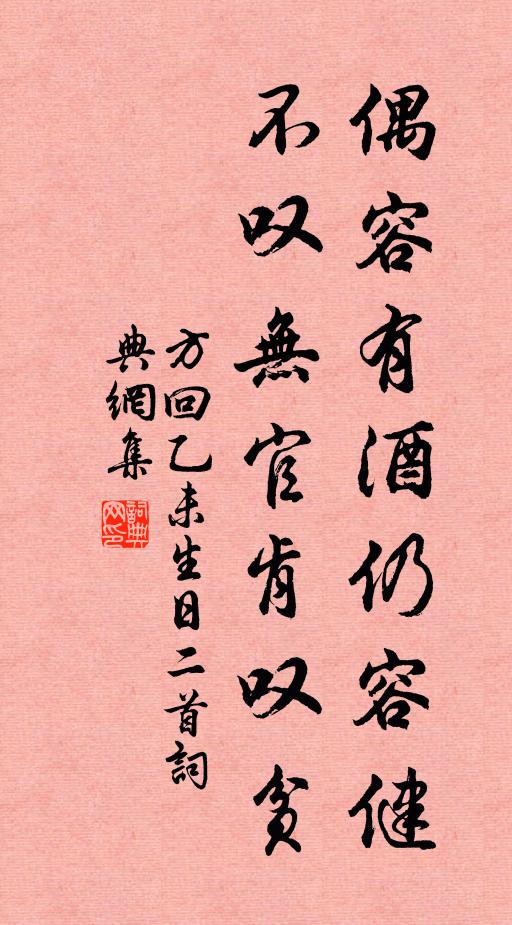 偶容有酒仍容健
不叹無官肯叹貧
方回乙未生日二首詞
典網集
詞典网印